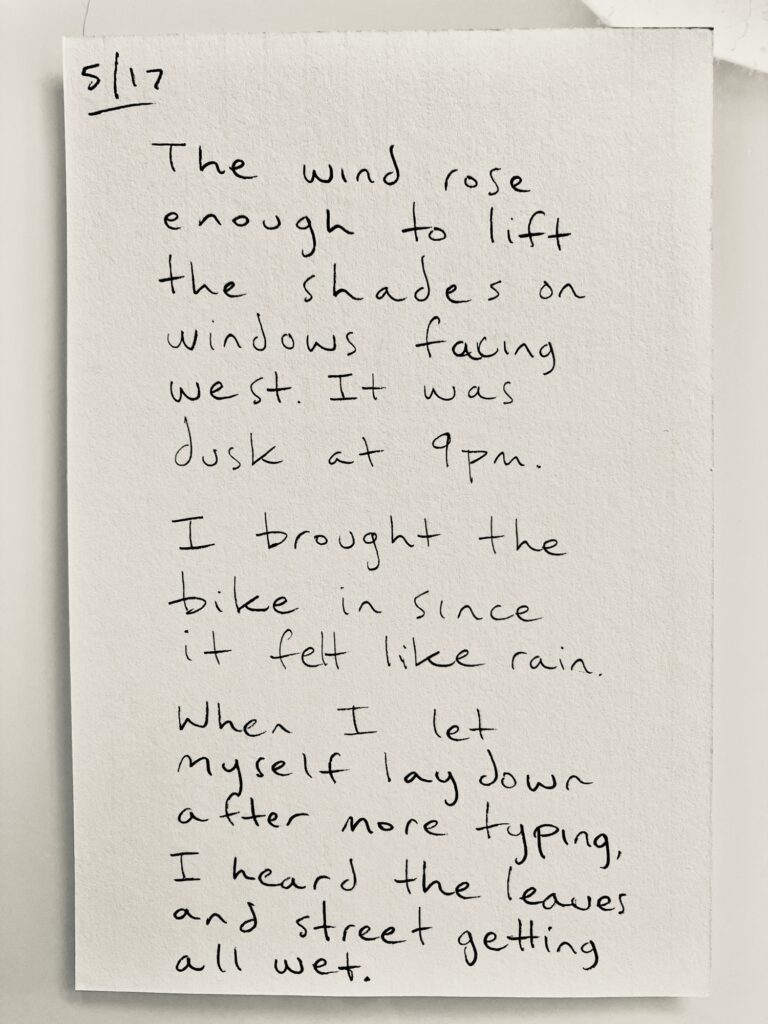 5/17
The wind rose
enough to lift
the shades on
windows facing
west. It was
dusk at 9pm.
I brought the
bike in since
it felt like rain.
When I let
myself lay down
after more typing,
I heard the leaves
and street getting
all wet.